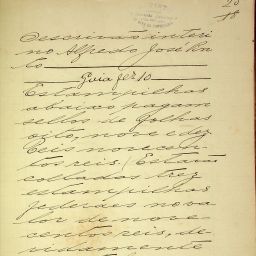 Oescrivão interi
no Alfredo José Pin
to
Guia fez 10
Estampilhas
abaixo pagam
sellos de folhas
oito, nove e dez
Reis novecen
tos reis. (Estão
colladas trez
estampilhas
federaes no va
lor de nove-
centos reis, de-
vidamente